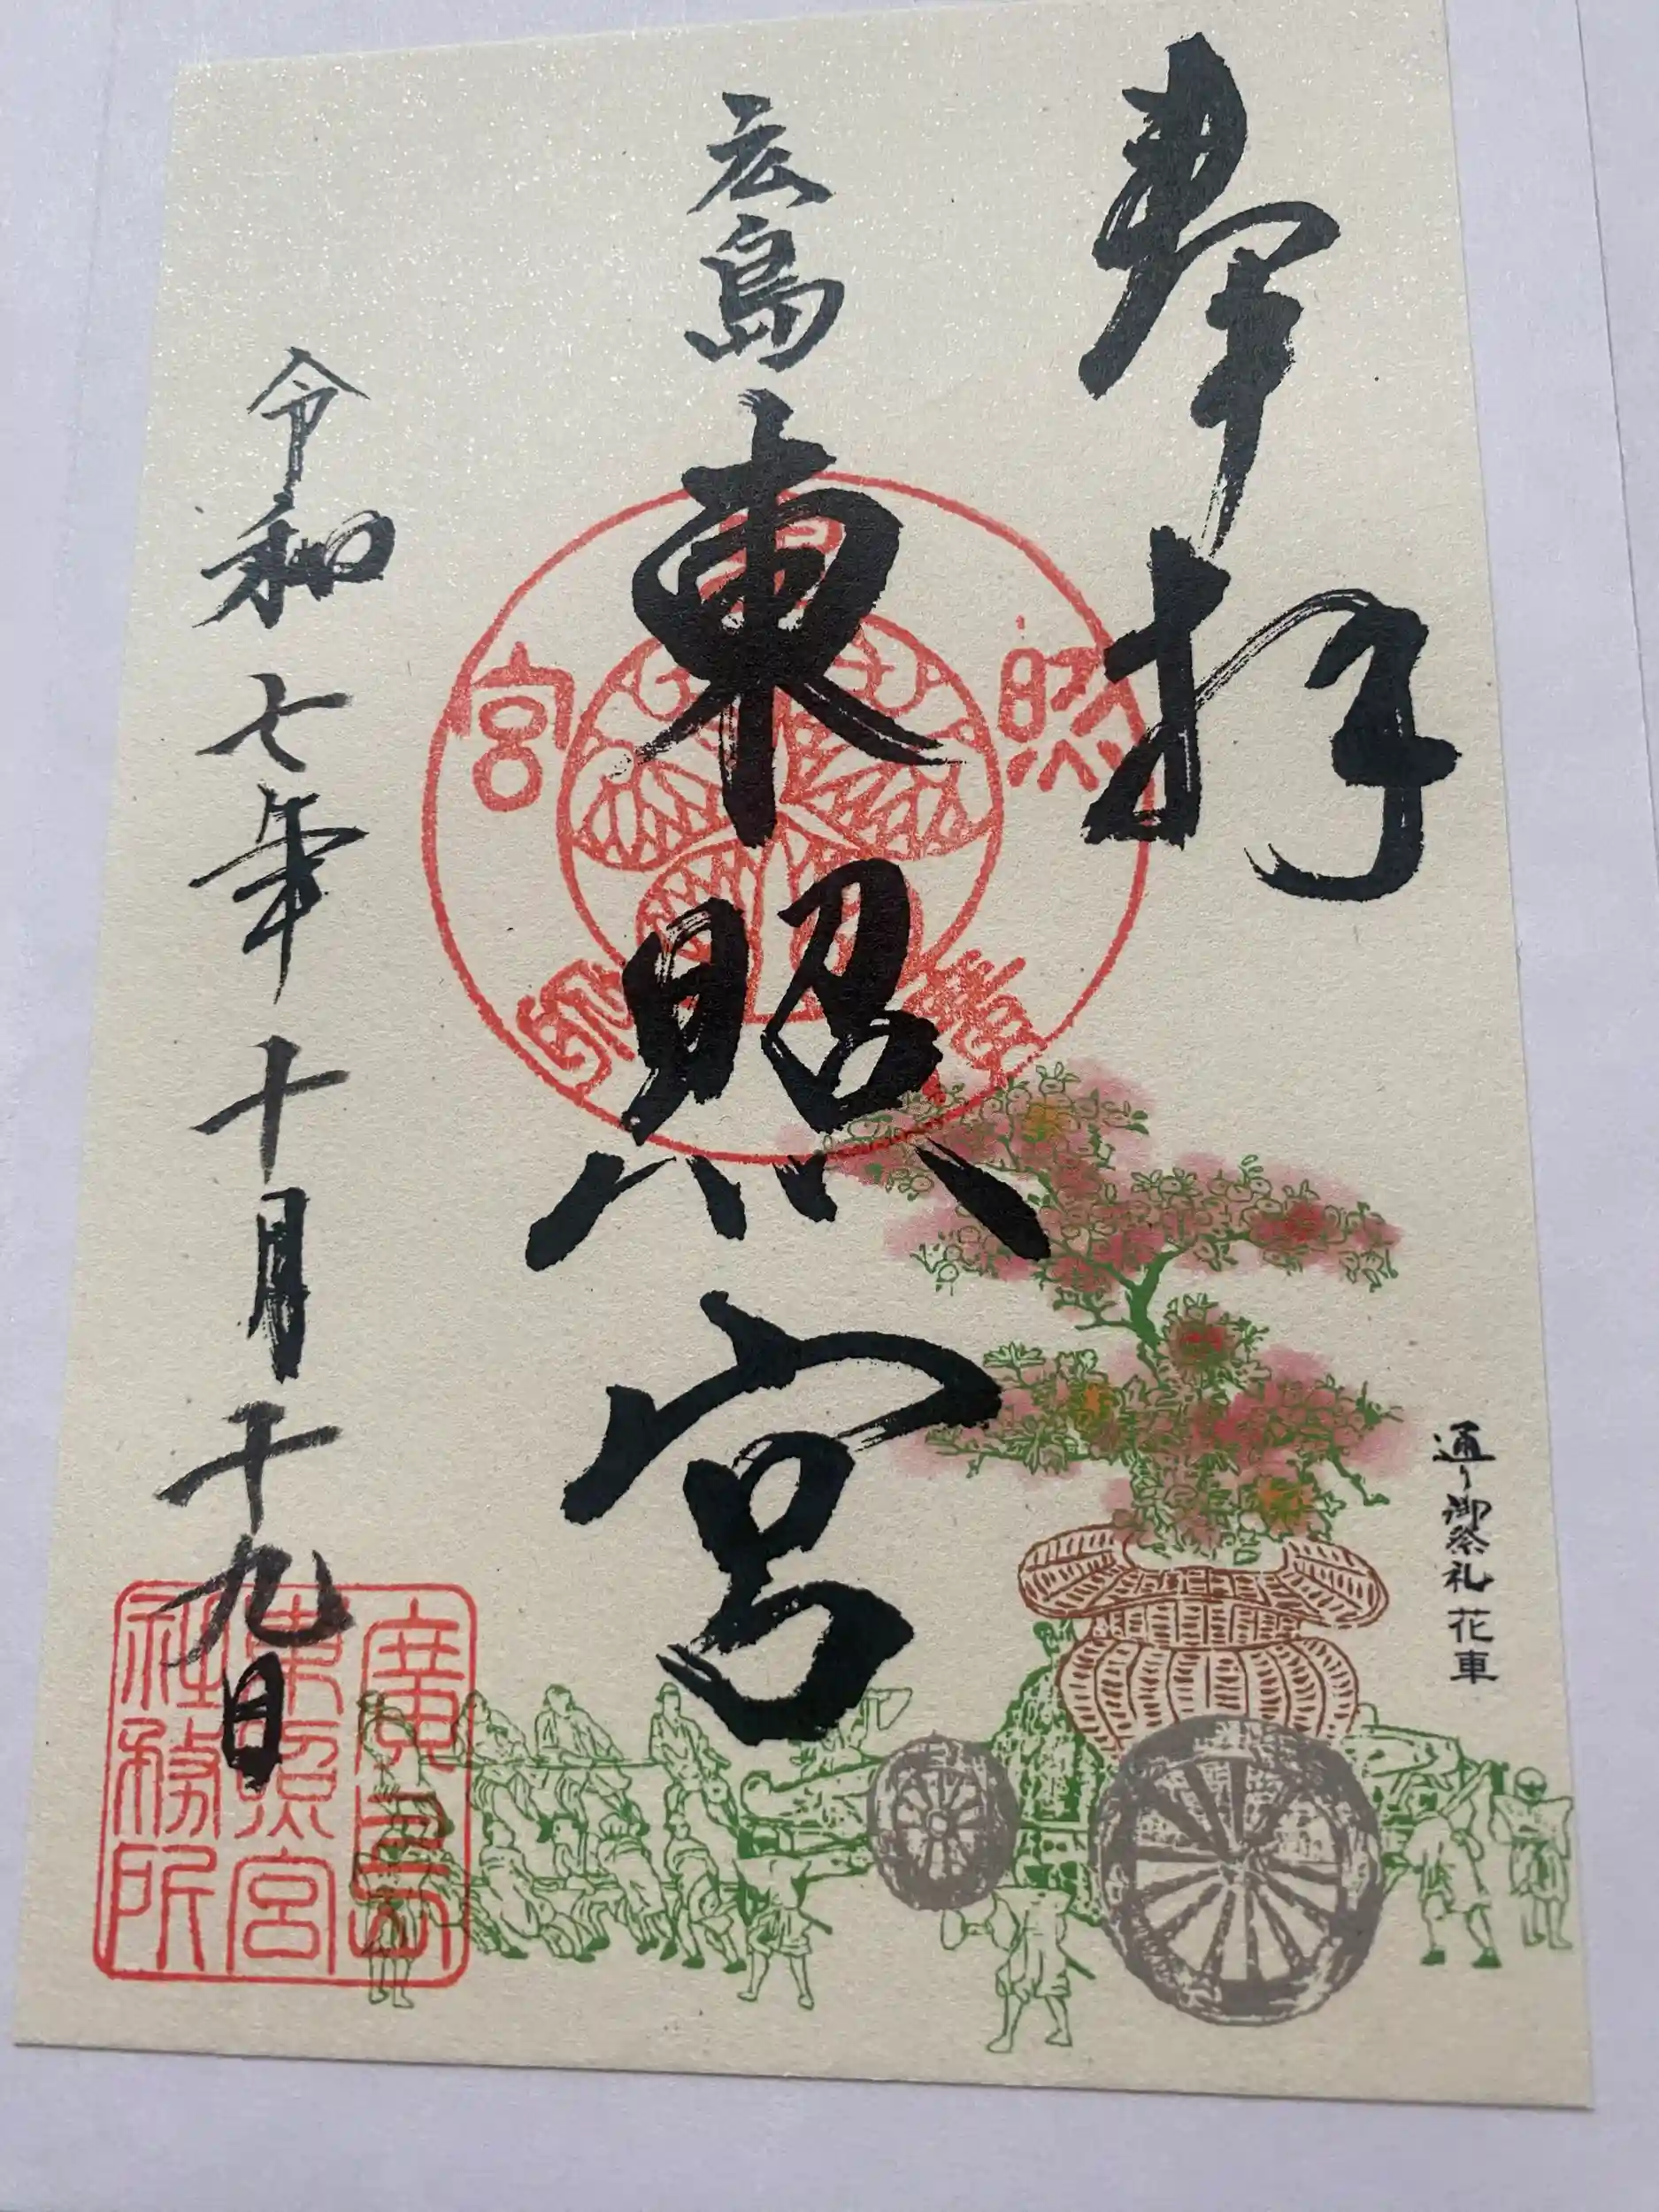 奉拝
通り御祭礼 花車
広島
東照宮
令和七年十月十九日
東照宮
廣島
東照宮
社務所